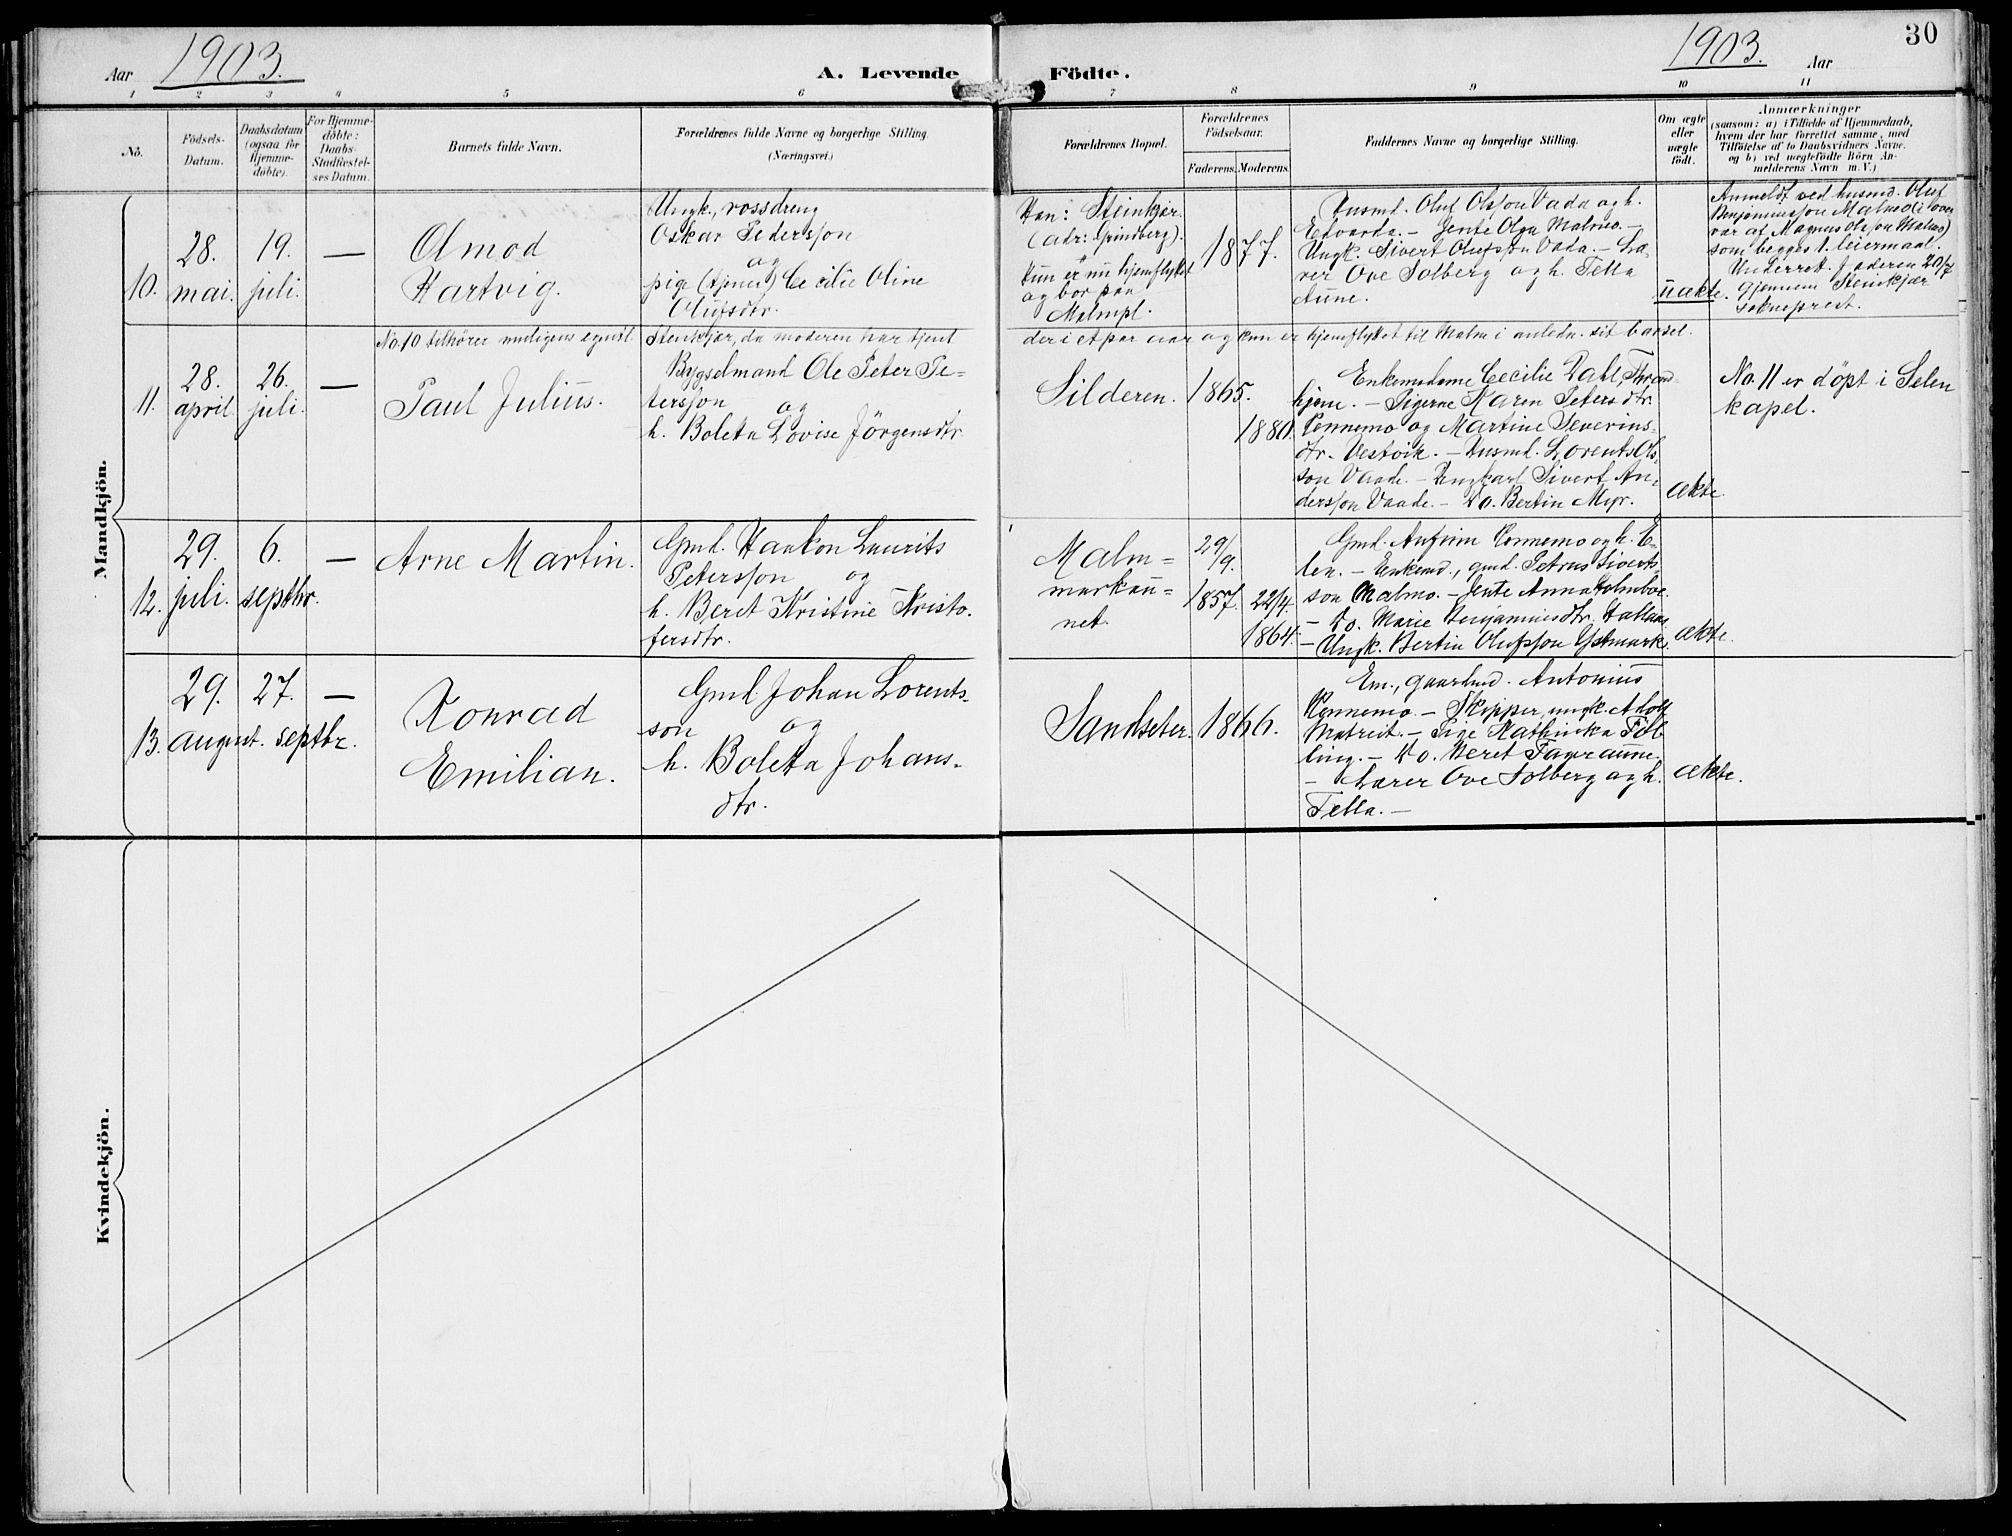 1903.
Aar
A. Levende
Födte.
1903.
Aar
30
1 2 3 4 5 6 7 8 9 10 11
No.
Födsels-
Datum.
Daabsdatum
(ogsaa for
Hjemme-
döbte).
For Hjemme-
döbte:
Daabs-
Stadfæstel-
ses Datum.
Barnets fulde Navn.
Forældrenes fulde Navne og borgerlige Stilling.
(Næringsvei.)
Forældrenes Bopæl.
Forældrenes
Födselsaar.
Faderens.
Moderens.
Faddernes Navne og borgerlige Stilling.
Om ægte
eller
uægte
födt.
Anmærkninger
(saasom: a) i Tilfælde af Hjemmedaab,
hvem der har forrettet samme, med
Tilföielse af to Daabsvidners Navne.
og b) ved uægtefödte Börn An-
melderens Navn m. V.)
Mandkjön.
10.
28.
mai.
19.
juli.
—
Olmod
Hartvig.
Ungk.,
Oskar Pedersson
og
pige (tjener) Cecilie Oline
Olufsdtr.
Han: Steinkjær.
(adr: Grindberg).
Hun er nu hjemflyttet
og bor paa
Malmpl.
1877.
Husmd. Oluf Olsson Vada og h.
Edvarda. — Jente Olga Malmo. —
Ungk. Sivert Olufsson Vada. — Læ-
rer Ove Solberg og h. Tella
Aune.
uækte.
Anmeldt ved husmd. Oluf
Benjaminsson Malmo (i over
vær af Magnus Olsson Malmo)
som begges 1. leiermaal.
Underret. faderen 20/7
gjennem Steinkjær
sokneprest.
No. 10 tilhører muligens egentl. Steinkjær, da moderen har tjent
der i et par aar og kun er hjemflyttet til Malm i anledn. sit barsel.
11.
28.
april.
26.
juli.
—
Paul Julius.
Bygselmand Ole Peter Pe-
tersson og
h. Boleta Lovise Jörgensdtr.
Silderen.
1865.
1880.
Enkemadame Cecilie Dahl, Thrond-
hjem. — Pigerne Karen Petersdtr.
Vennemo og Martine Severins-
dtr. Vestvik. — Husmd. Lorents Ols-
son Vaade. — Ungkarl Sivert An-
dersson Vaade. — Do. Bertin Myr.
ækte.
No. 11 er döpt i Selen
kapel.
12.
29.
juli.
6.
septbr.
—
Arne Martin.
Gmd. Haakon Laurits
Petersson og
h. Beret Kristine Kristo-
fersdtr.
Malm-
markau-
net.
29/9.
1857.
22/4.
1864.
Gmd. Anfinn Vennemo og h. E-
len. — Enkemd., gmd. Petrus Siverts-
son Malmo. — Jente Anna Holmboe.
— Do. Marie Benjaminsdtr.
— Ungk. Bertin Olufsson Ystmark.
ækte.
13.
29.
august.
27.
septbr.
—
Konrad
Emilian.
Gmd. Johan Lorents-
son og
h. Boleta Johans-
dtr.
Sandseter.
1866.
Em., gaardmd. Antonius
Vennemo. — Skipper, ungk. Adolf
— Pige KathinkaFöl-
ling. — Do. Beret Fageraune.
— Lærer Ove Solberg og h.
Tella. —
ækte.
Kvindekjön.